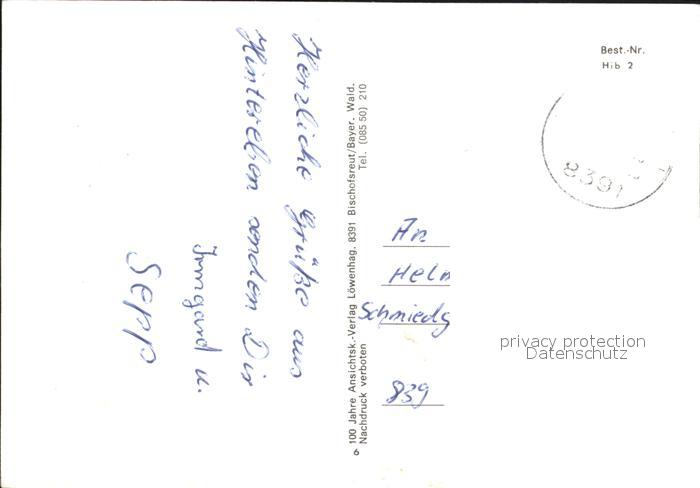 Herzliche Grüße aus
Hintereben senden Dir
Irmgard u.
Sepp
6 100 Jahre Ansichtsk.-Verlag Löwenhag. 8391 Bischofsreut/Bayer. Wald.
Nachdruck verboten Tel. (085 50) 210
Best.-Nr.
Hib 2
8391
An
Helm
Schmiedg
839
privacy protection
Datenschutz